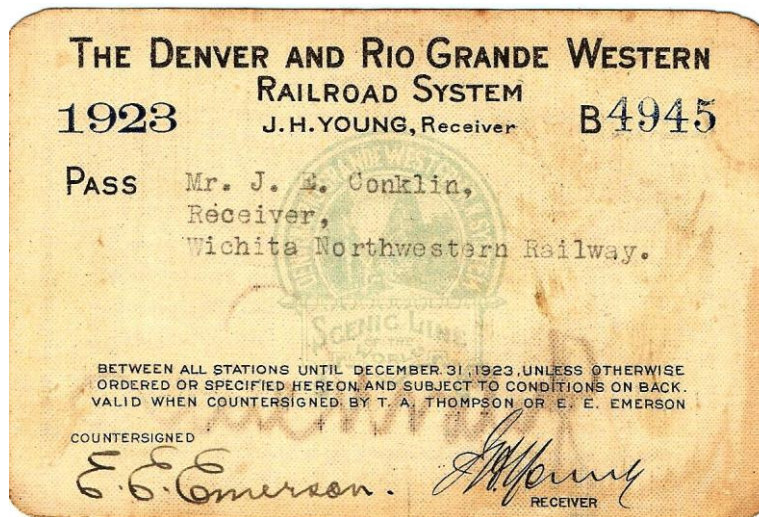 THE DENVER AND RIO GRANDE WESTERN
RAILROAD SYSTEM
1923 J.H.YOUNG, Receiver B4945
PASS Mr. J. E. Conklin,
Receiver,
Wichita Northwestern Railway.
SCENIC LINE
OF THE
WORLD
BETWEEN ALL STATIONS UNTIL DECEMBER 31, 1923, UNLESS OTHERWISE
ORDERED OR SPECIFIED HEREON, AND SUBJECT TO CONDITIONS ON BACK.
VALID WHEN COUNTERSIGNED BY T. A. THOMPSON OR E. E. EMERSON
COUNTERSIGNED
E. E. Emerson. J H Young
RECEIVER